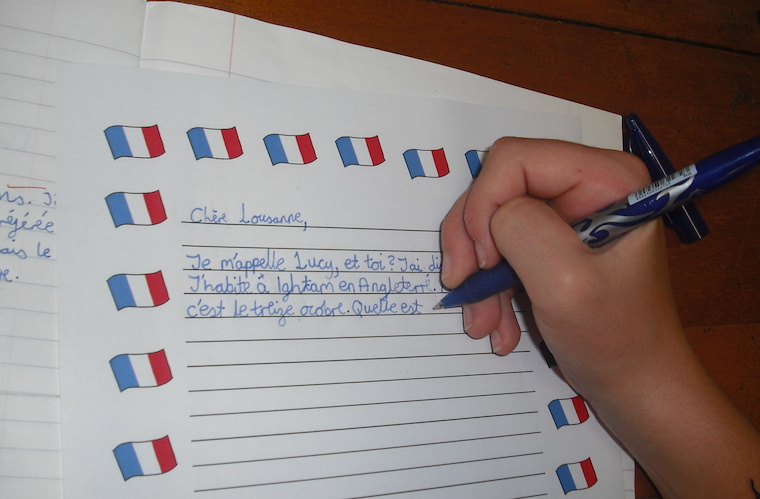 Chère Lousanne,
Je m'appelle Lucy, et toi? J'ai di
J'habite à Ightam en Angleterré.
c'est le treize ocobre. Quelle est
ais le